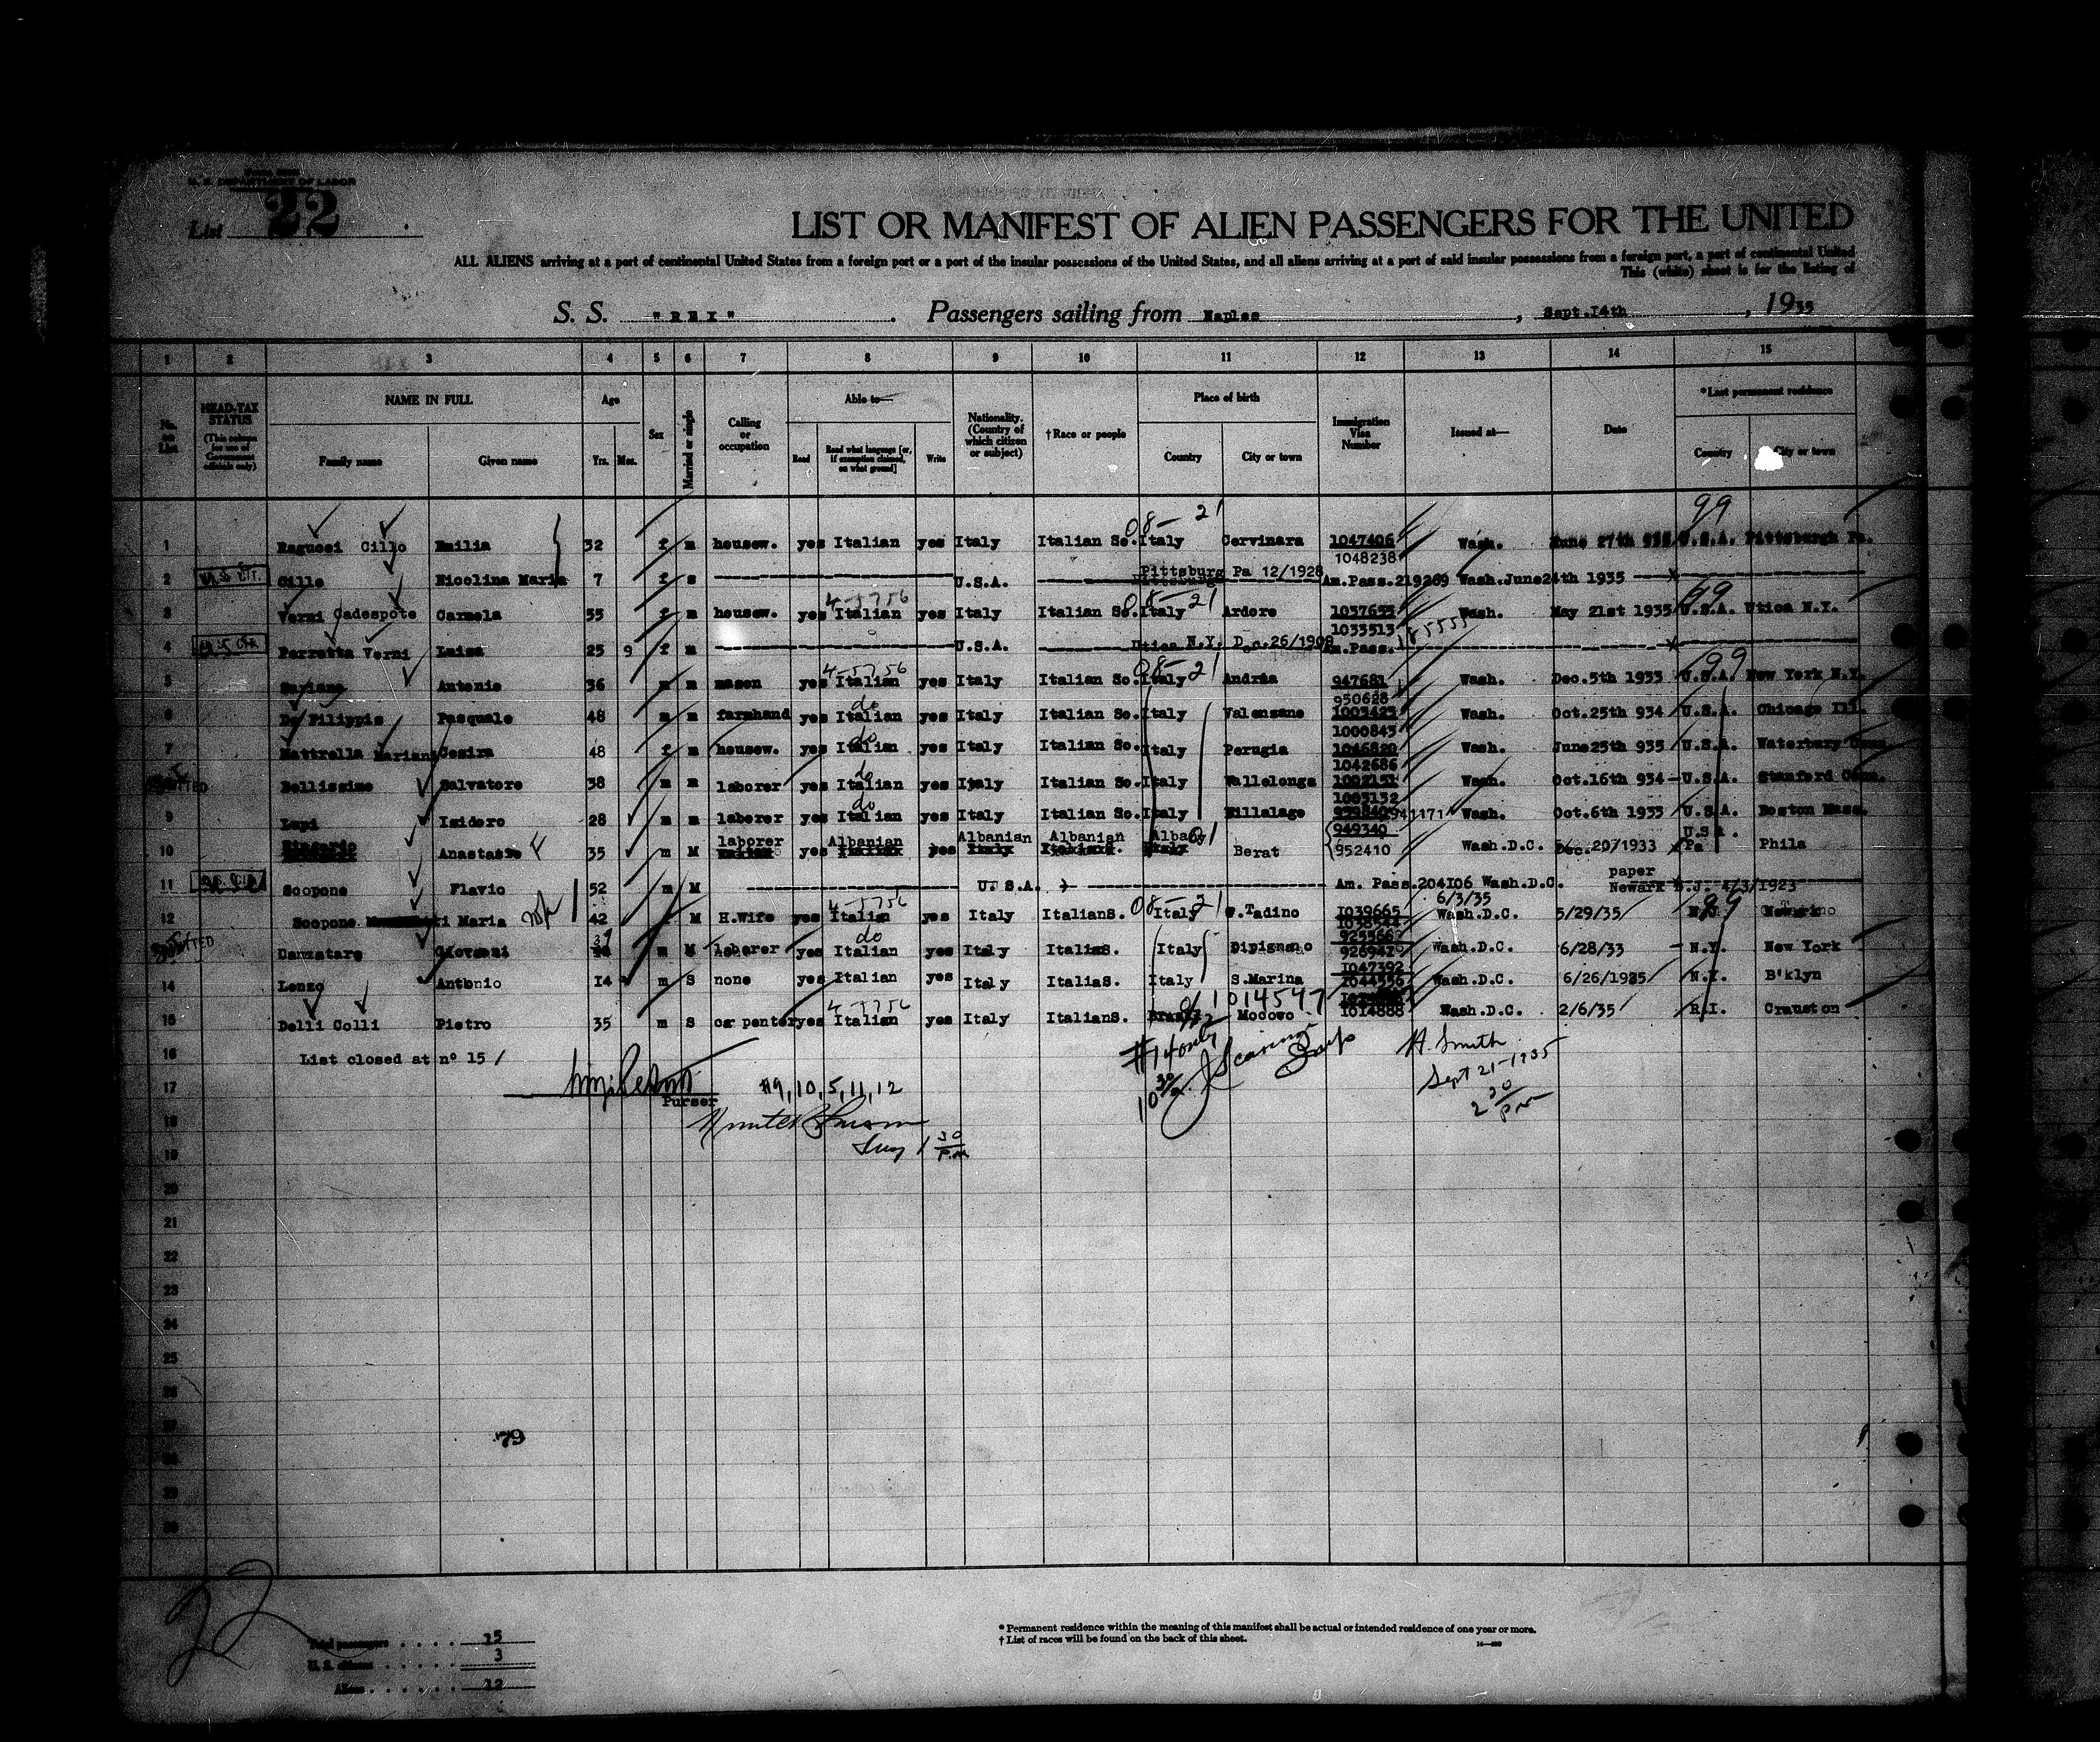 U. S. DEPARTMENT OF LABOR
List 22
LIST OR MANIFEST OF ALIEN PASSENGERS FOR THE UNITED
ALL ALIENS arriving at a port of continental United States from a foreign port or a port of the insular possessions of the United States, and all aliens arriving at a port of said insular possessions from a foreign port, a part of continental United
This (white) sheet is for the listing of
S. S. "REX". Passengers sailing from Naples, Sept.14th, 1935
1 2 3 4 5 6 7 8 9 10 11 12 13 14 15
No. on List
HEAD-TAX STATUS (This column for use of Government officials only)
NAME IN FULL Family name Given name
Age Yrs. Mos.
Sex
Married or single
Calling or occupation
Able to— Read Read what language [or, if exemption claimed, on what ground] Write
Nationality. (Country of which citizen or subject)
†Race or people
Place of birth Country City or town
Immigration Visa Number
Issued at—
Date
*Last permanent residence Country City or town
08- 21 99
1 Ragucci Cillo Emilia 32 f m housew. yes Italian yes Italy Italian So. Italy Cervinara 1047406 1048238 Wash. June 27th 935 U.S.A. Pittsburgh Pa.
2 U.S. CIT. Cillo Nicolina Maria 7 f s U.S.A. Pittsburg Pa 12/1928 Am.Pass.219269 Wash.June24th 1935
3 Verni Cadespote Carmela 55 f m housew. yes Italian yes Italy Italian So. Italy Ardore 1037655 1033513 Wash. May 21st 1935 U.S.A. Utica N.Y.
4 U.S. CIT. Perretta Verni Luisa 25 9 f m U.S.A. Utica N.Y. Dec.26/1909 Am.Pass.
5 Antonio 36 m m mason yes Italian yes Italy Italian So. Italy Andria 947681 950628 Wash. Dec.5th 1933 U.S.A. New York N.Y.
6 De Filippis Pasquale 48 m m farmhand yes Italian yes Italy Italian So. Italy Valenzano 1003423 1000843 Wash. Oct.25th 934 U.S.A. Chicago Ill.
7 Mattrella Mariani Cesira 48 f m housew. yes Italian yes Italy Italian So. Italy Perugia 1046820 1042686 Wash. June25th 935 U.S.A. Waterbury Conn.
Bellissimo Salvatore 38 m m laborer yes Italian yes Italy Italian So. Italy Vallelonga 1002151 1003132 Wash. Oct.16th 934 U.S.A. Stamford Conn.
9 Lupi Isidoro 28 m m laborer yes Italian yes Italy Italian So. Italy Villalago 941171 Wash. Oct.6th 1933 U.S.A. Boston Mass.
10 Anastasio F 35 m M laborer yes Albanian yes Albanian Albanian Albany Berat 949340 952410 Wash.D.C. Dec.20/1933 U.S.A. Pa Phila
11 U.S. CIT. Scopone Flavio 52 m M U.S.A. Am. Pass.204106 Wash.D.C. 6/3/35 paper Newark N.J. 4/3/1923
12 Scopone Maria 42 M H.Wife yes Italian yes Italy ItalianS. Italy G.Tadino 1039665 Wash.D.C. 5/29/35 N.J. Newark
Cannataro Giovanni 37 m M laborer yes Italian yes Italy ItaliaS. Italy Dipignano 925566 926942 Wash.D.C. 6/28/33 N.Y. New York
14 Lenzo Antonio 14 m S none yes Italian yes Italy ItaliaS. Italy S.Marina 1047392 1044556 Wash.D.C. 6/26/1935 N.Y. B'klyn
1014547
15 Delli Colli Pietro 35 m S carpenter yes Italian yes Italy ItalianS. Brazil Mococo 1014888 Wash.D.C. 2/6/35 R.I. Cranston
16 List closed at nº 15 /
#14 only
H. Smith
Sept 21-1935
2 30 PM
17 Purser
#9, 10, 5, 11, 12
10 30
18
19
1 30 P.M
20
21
22
23
24
25
26
27
28
29
30
79
22
Total passengers . . . . 15
U. S. citizens . . . . . 3
Aliens . . . . . . 12
* Permanent residence within the meaning of this manifest shall be actual or intended residence of one year or more.
† List of races will be found on the back of this sheet.